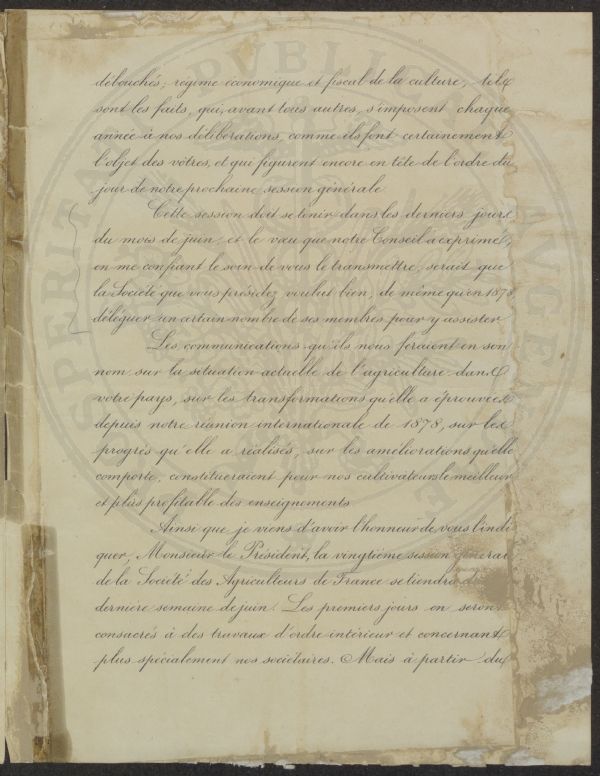 débouchés; régime économique et fiscal de la culture, tels
sont les faits, qui, avant tous autres, s'imposent chaque
année à nos délibérations, comme ils font certainement
l'objet des vôtres, et qui figurent encore en tête de l'ordre du
jour de notre prochaine session générale.
Cette session doit se tenir dans les derniers jours
du mois de juin, et le vœu que notre Conseil a exprimé,
en me confiant le soin de vous le transmettre, serait que
la Société que vous présidez voulut bien, de même qu'en 1878,
déléguer un certain nombre de ses membres pour y assister.
Les communications qu'ils nous feraient en son
nom sur la situation actuelle de l'agriculture dans
votre pays, sur les transformations qu'elle a éprouvées
depuis notre réunion internationale de 1878, sur les
progrès qu'elle a réalisés, sur les améliorations qu'elle
comporte, constitueraient pour nos cultivateurs le meilleur
et plus profitable des enseignements.
Ainsi que je viens d'avoir l'honneur de vous l'indi
quer, Monsieur le Président, la vingtième session général
de la Société des Agriculteurs de France se tiendra
dernière semaine de juin. Les premiers jours en seron
consacrés à des travaux d'ordre intérieur et concernant
plus spécialement nos sociétaires. Mais à partir du